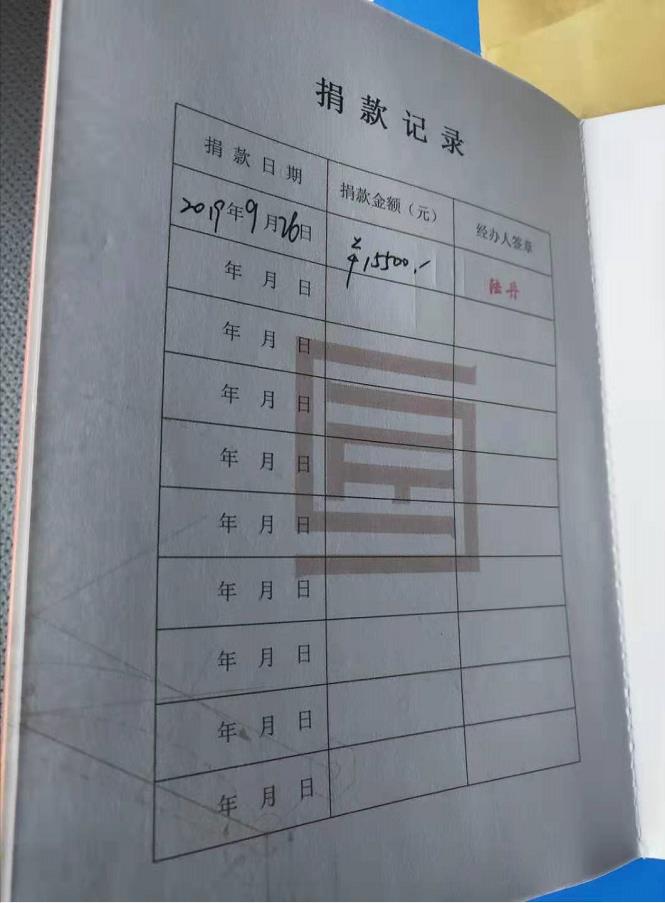 捐款记录
捐款日期 捐款金额（元） 经办人签章
2019年9月26日 ¥15500.- 陆丹
年 月 日
年 月 日
年 月 日
年 月 日
年 月 日
年 月 日
年 月 日
年 月 日
年 月 日